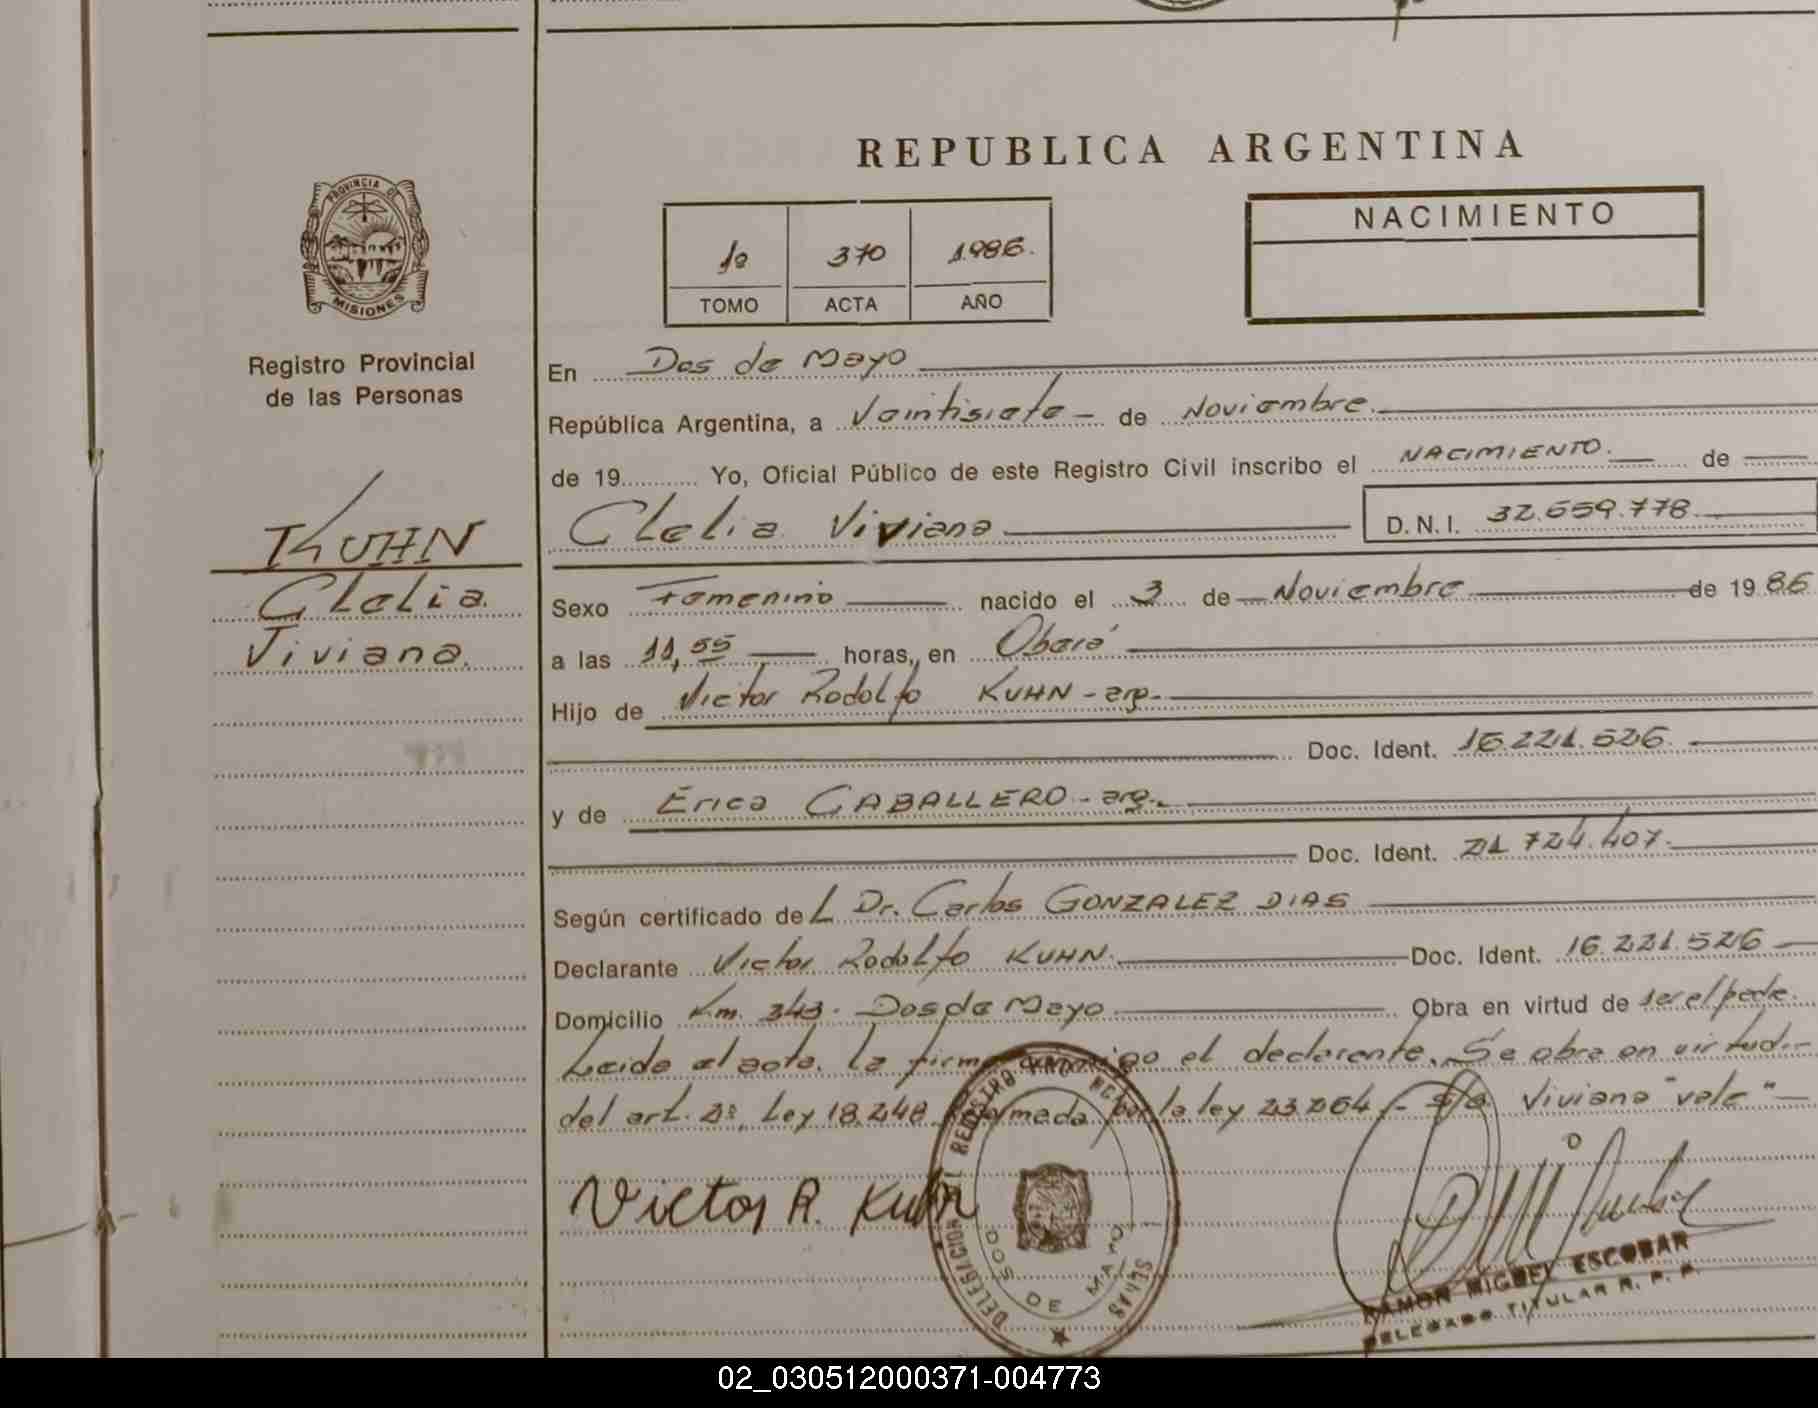 REPUBLICA ARGENTINA
PROVINCIA DE
MISIONES
Registro Provincial
de las Personas
1º 370 1.986.
TOMO ACTA AÑO
NACIMIENTO
KUHN
Clelia
Viviana.
En Dos de Mayo
República Argentina, a Veintisiete - de Noviembre.
de 19 Yo, Oficial Público de este Registro Civil inscribo el NACIMIENTO. de
Clelia Viviana D.N.I. 32.659.778
Sexo Femenino nacido el 3 de Noviembre de 1986
a las 11,55 horas, en Oberá
Hijo de Victor Rodolfo KUHN - arg.
Doc. Ident. 16.221.526.
y de Erica CABALLERO - arg.
Doc. Ident. 21.724.407.
Según certificado del Dr. Carlos GONZALEZ DIAS
Declarante Victor Rodolfo KUHN. Doc. Ident. 16.221.526
Domicilio Km. 343. Dos de Mayo Obra en virtud de ser el padre.
Leida el acta, la firma conmigo el declarente. Se obra en virtud.-
del art. 2º, Ley 18.248 por la ley 23.264.- s/a Viviana "vale" -
Victor R. Kuhn
DELEGACION DEL REGISTRO
DOS DE MAYO
RAMON MIGUEL ESCOBAR
DELEGADO TITULAR R. P. P.
02_030512000371-004773